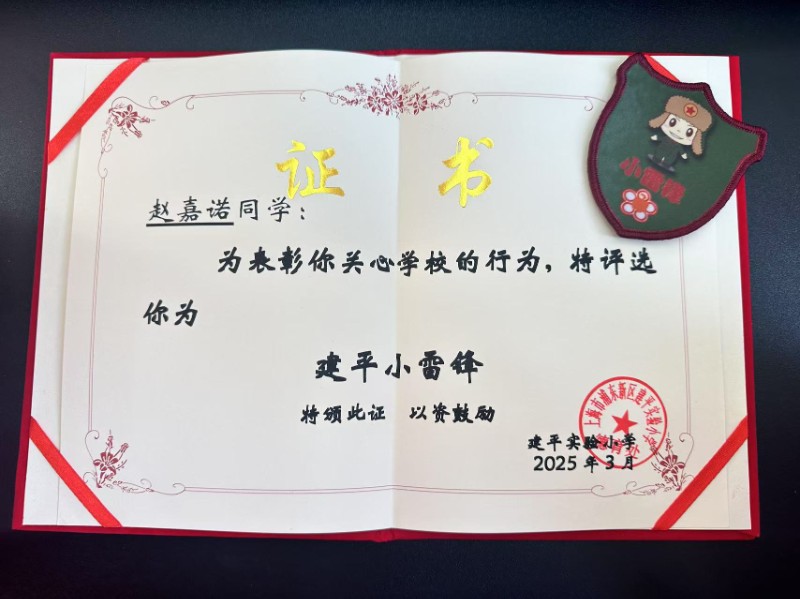 证 书
赵嘉诺同学：
为表彰你关心学校的行为，特评选
你为
建平小雷锋
特颁此证 以资鼓励
建平实验小学
2025年3月
上海市浦东新区建平实验小学
德育处
小雷锋